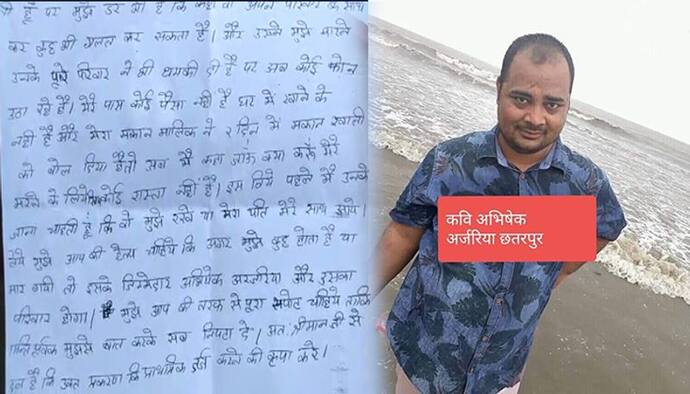 है पर मुझे डर भी है कि कहीं वो अपने परिवार के साथ
कर कुछ भी गलत कर सकता है। और उसने मुझे मारने
उनके पूरे परिवार ने भी धमकी दी है पर अब कोई फोन
उठा रहे है। मेरे पास कोई पैसा नहीं है घर में खाने के
नहीं है और मेरा मकान मालिक ने 2 दिन में मकान खाली
को बोल दिया है तो अब मैं कहा जाऊँ क्या करूँ मेरे
मरने के लिये कोई रास्ता नहीं है। इस लिये पहले मैं उनके
जाना चाहती हूं कि वो मुझे रखे या मेरा पति मेरे साथ आये।
मुझे आप की हेल्प चाहिये कि अगर मुझे कुछ होता है या
मार गयी तो इसके जिम्मेदार अभिषेक अरजरिया और उसका
परिवार होगा। मुझे आप की तरफ से पूरा सपोर्ट चाहिये ताकि
शान्तिपूर्वक मुझसे बात करके सब निपटा दे। अतः श्रीमान जी से
है कि उक्त प्रकरण कि प्राथमिक दर्ज करने की कृपा करे।
कवि अभिषेक
अर्जरिया छतरपुर